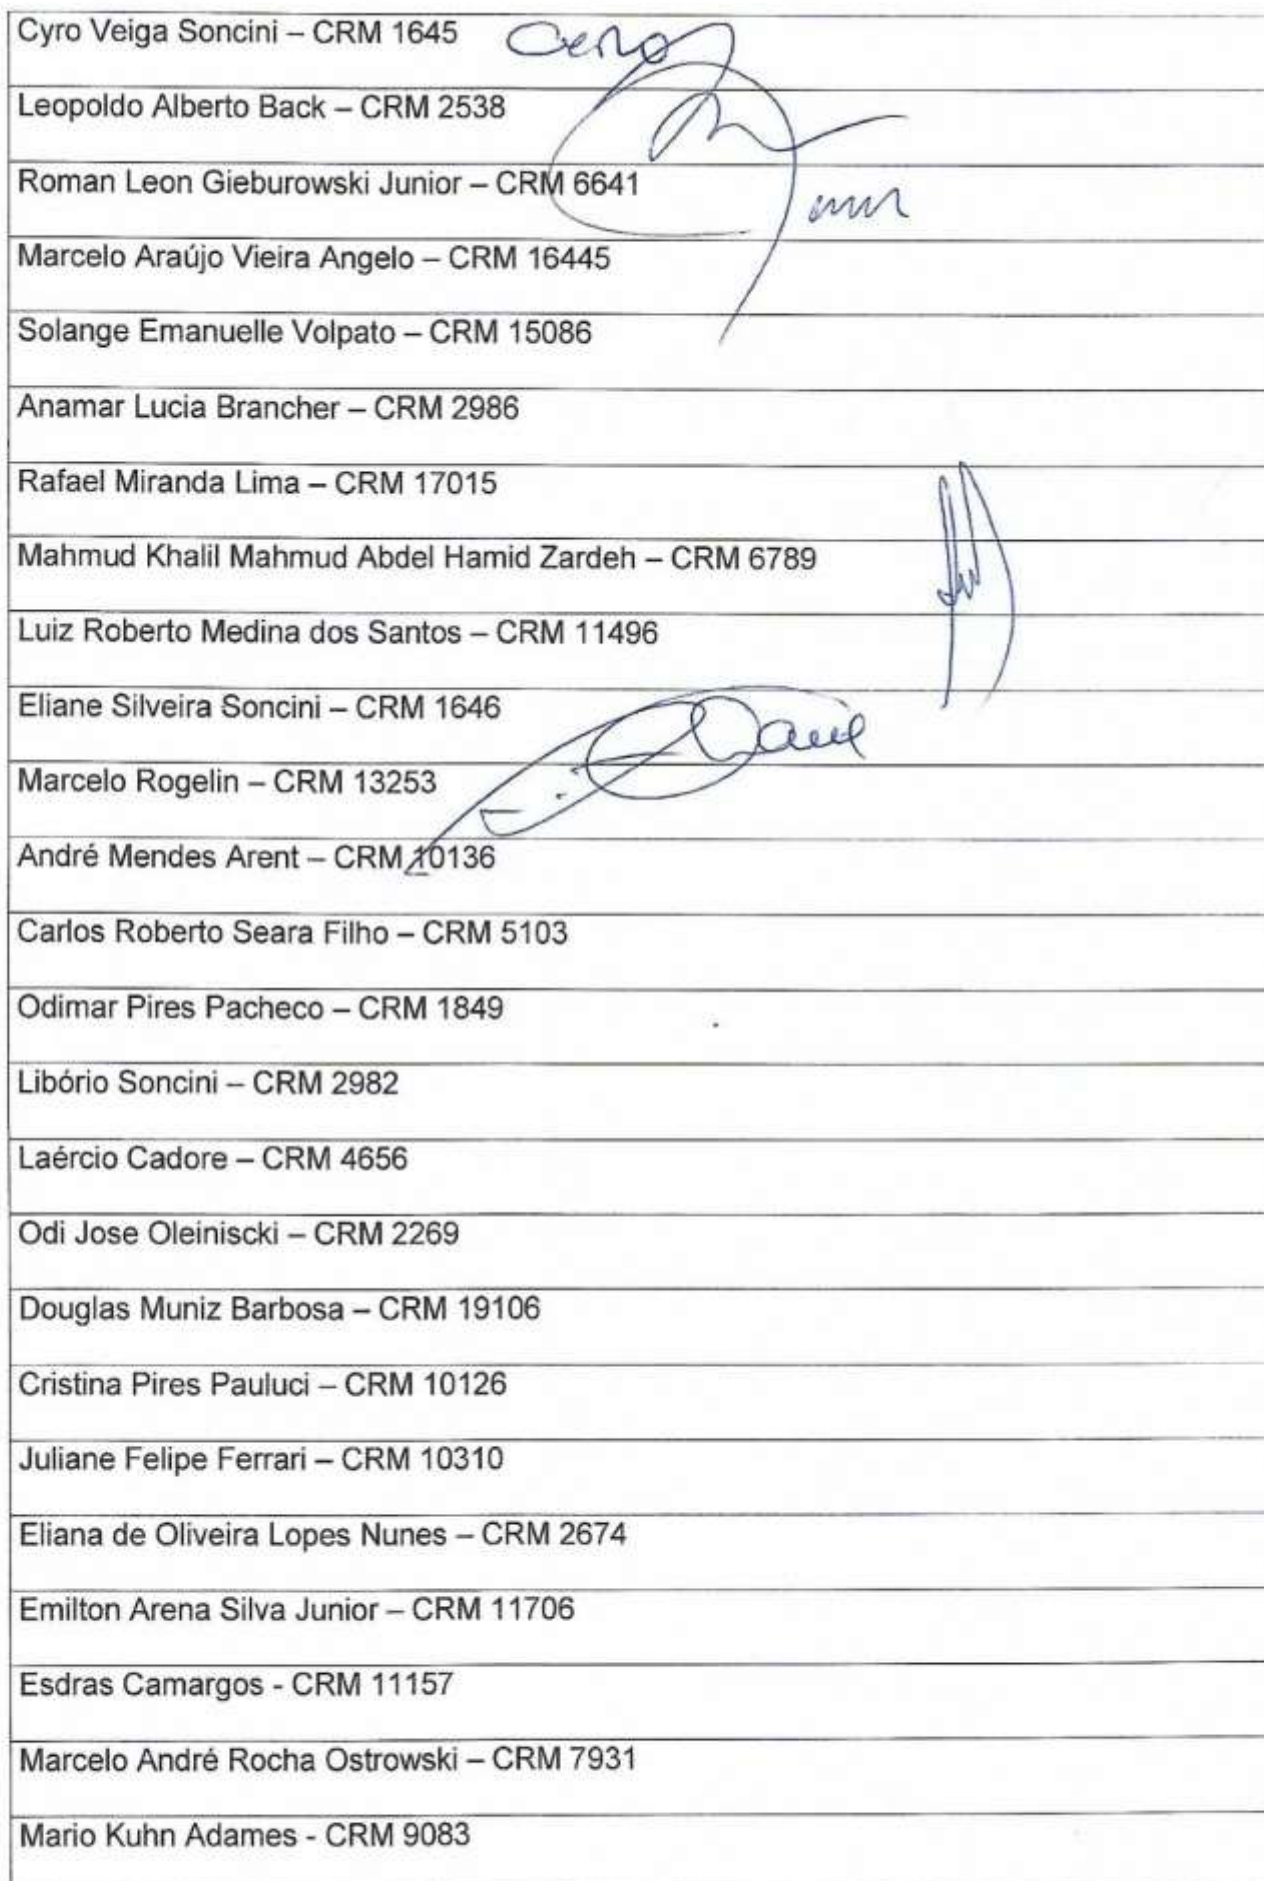 Cyro Veiga Soncini – CRM 1645
Leopoldo Alberto Back – CRM 2538
Roman Leon Gieburowski Junior – CRM 6641
Marcelo Araújo Vieira Angelo – CRM 16445
Solange Emanuelle Volpato – CRM 15086
Anamar Lucia Brancher – CRM 2986
Rafael Miranda Lima – CRM 17015
Mahmud Khalil Mahmud Abdel Hamid Zardeh – CRM 6789
Luiz Roberto Medina dos Santos – CRM 11496
Eliane Silveira Soncini – CRM 1646
Marcelo Rogelin – CRM 13253
André Mendes Arent – CRM 10136
Carlos Roberto Seara Filho – CRM 5103
Odimar Pires Pacheco – CRM 1849
Libório Soncini – CRM 2982
Laércio Cadore – CRM 4656
Odi Jose Oleiniscki – CRM 2269
Douglas Muniz Barbosa – CRM 19106
Cristina Pires Pauluci – CRM 10126
Juliane Felipe Ferrari – CRM 10310
Eliana de Oliveira Lopes Nunes – CRM 2674
Emilton Arena Silva Junior – CRM 11706
Esdras Camargos - CRM 11157
Marcelo André Rocha Ostrowski – CRM 7931
Mario Kuhn Adames - CRM 9083